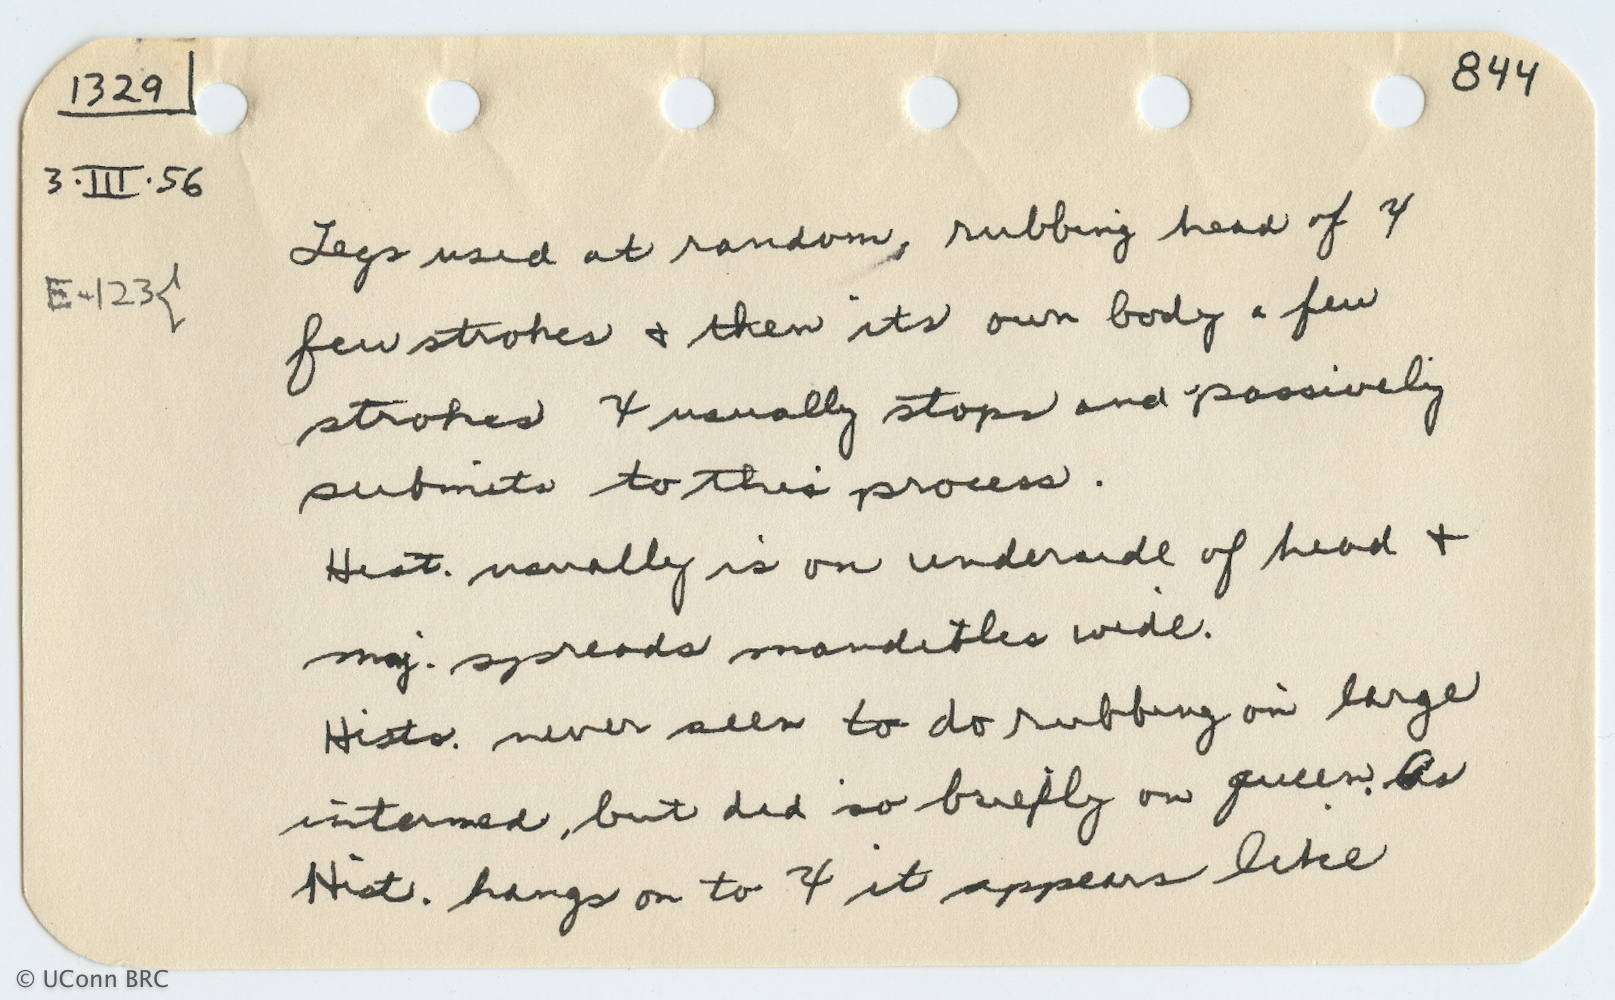 1329
844
3·III·56
E-123{
Legs used at random, rubbing head of ☿
few strokes & then its own body a few
strokes ☿ usually stops and passively
submits to this process.
Hist. usually is on underside of head &
maj. spreads mandibles wide.
Hists. never seen to do rubbing on large
intermed, but did so briefly on queen. As
Hist. hangs on to ☿ it appears like
© UConn BRC